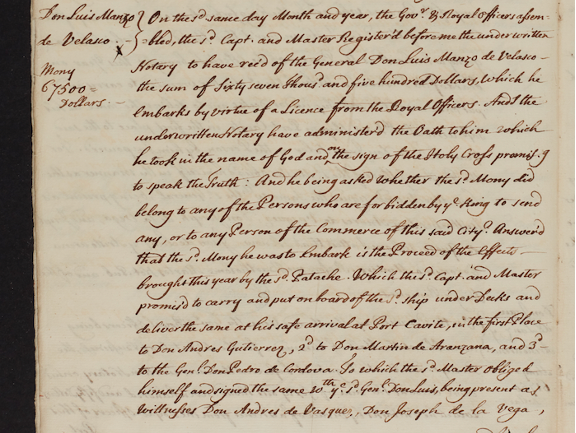 Don Luis Manzo
de Velasco
Mony
67500=
Dollars
On the sd. same day Month and year, the Govr. & Royal Officers assem-
bled, the sd. Capt. and Master Register'd before me the underwritten
Notary to have recd. of the General Don Luis Manzo de Velasco-
the sum of Sixty seven Thousd. and five hundred Dollars, which he
embarks by virtue of a Licence from the Royal Officers. And I the
underwritten Notary have administerd the Oath to him which
he took in the name of God and on the sign of the Holy Cross promisg.
to speak the Truth: And he being asked whether the sd. Mony did
belong to any of the Persons who are forbidden by ye. King to send
any, or to any Person of the Commerce of this said City. Answerd
that the sd. Mony he was to Embark is the Proceed of the Effects-
brought this year by the sd. Patache. Which the sd. Capt. and Master
promisd to carry and put on board of the sd. ship under Decks and
deliver the same at his safe arrival at Port Cavite, in the first Place
to Don Andres Gutierrez, 2d. to Don Martin de Aranzana, and 3d-
to the Genl. Don Pedro de Cordova. To which the sd. Master Obliged
himself and signed the same wth. ye. sd. Genl. Don Luis, being present as
Wittnesses Don Andres de Vasques, Don Joseph de la Vega,